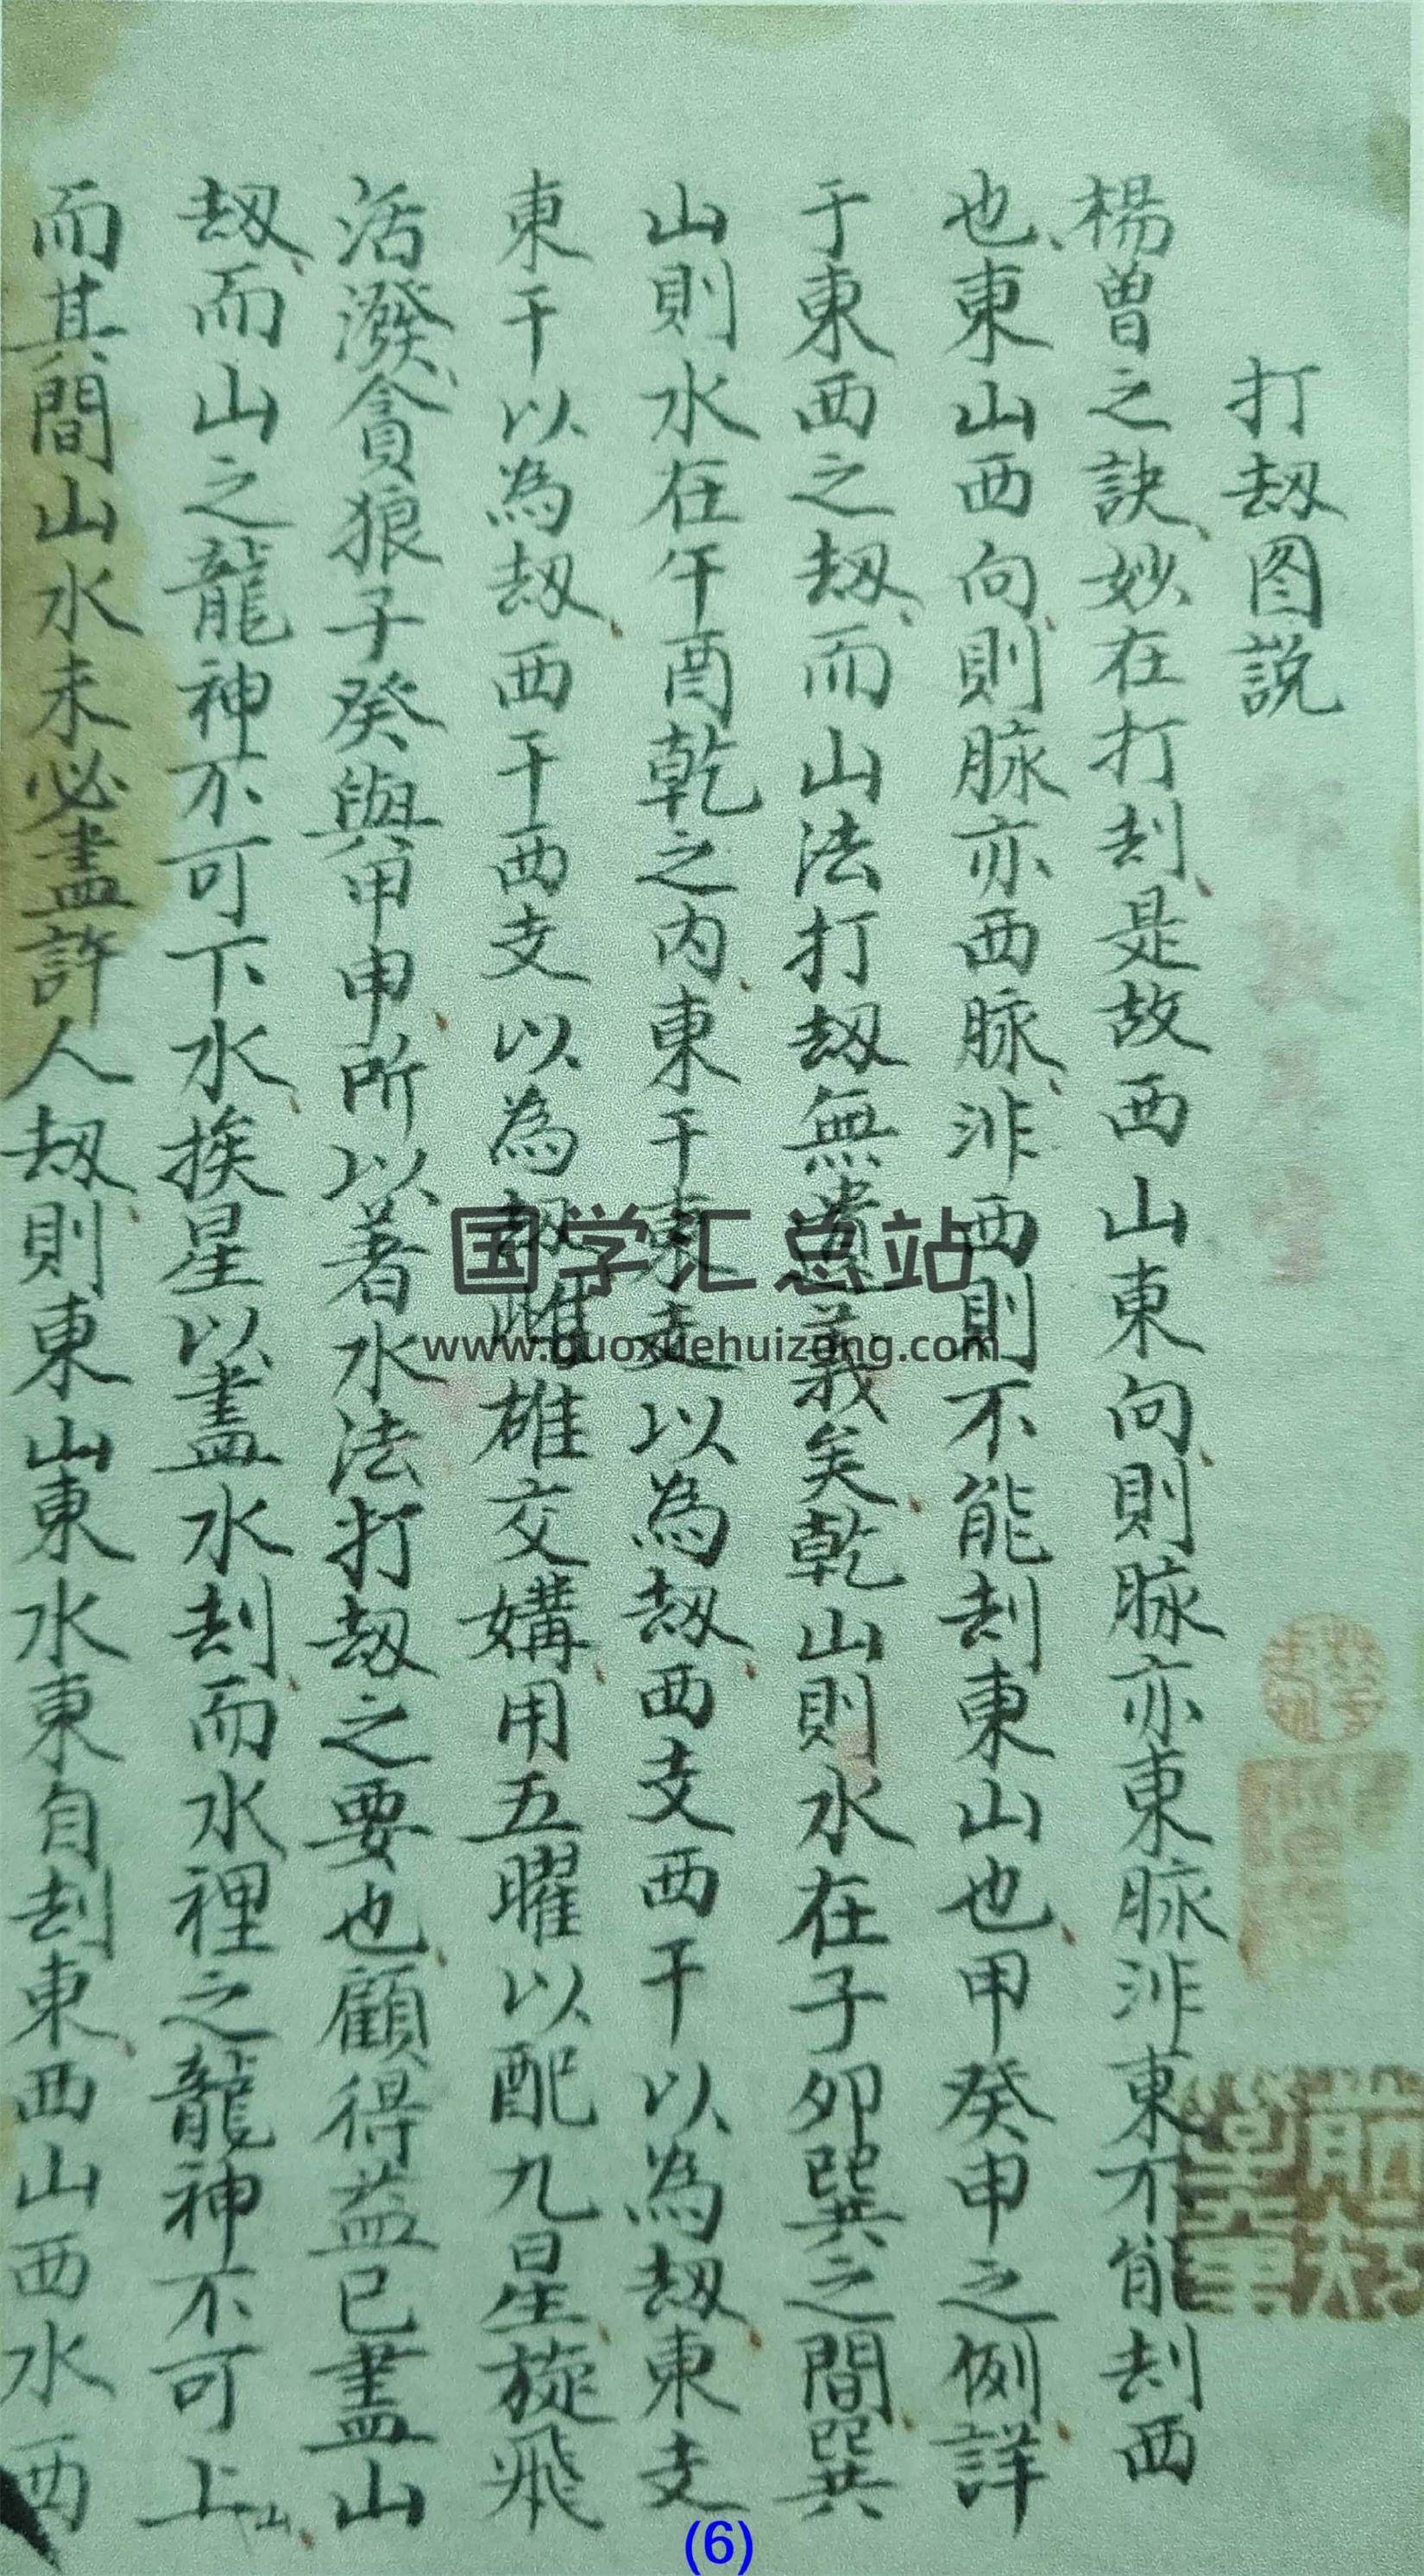 打刼图説
楊曾之訣妙在打刦是故西山東向則脉亦東脉非東不能刦西
也東山西向則脉亦西脉非西則不能刦東山也甲癸申之例詳
于東西之刼而山法打刼無遺義矣乾山則水在子卯巽之間巽
山則水在午酉乾之内東干東支以為刼西支西干以為刼東支
東干以為刼西干西支以為刼雌雄交媾用五曜以配九星旋飛
活潑貪狼子癸與甲申所以著水法打刼之要也顧得益已盡山
刼而山之龍神不可下水挨星以盡水刦而水裡之龍神不可上山
而其間山水未必盡許人刼則東山東水東自刦東西山西水西
国学汇总站
www.guoxuehuizong.com
(6)